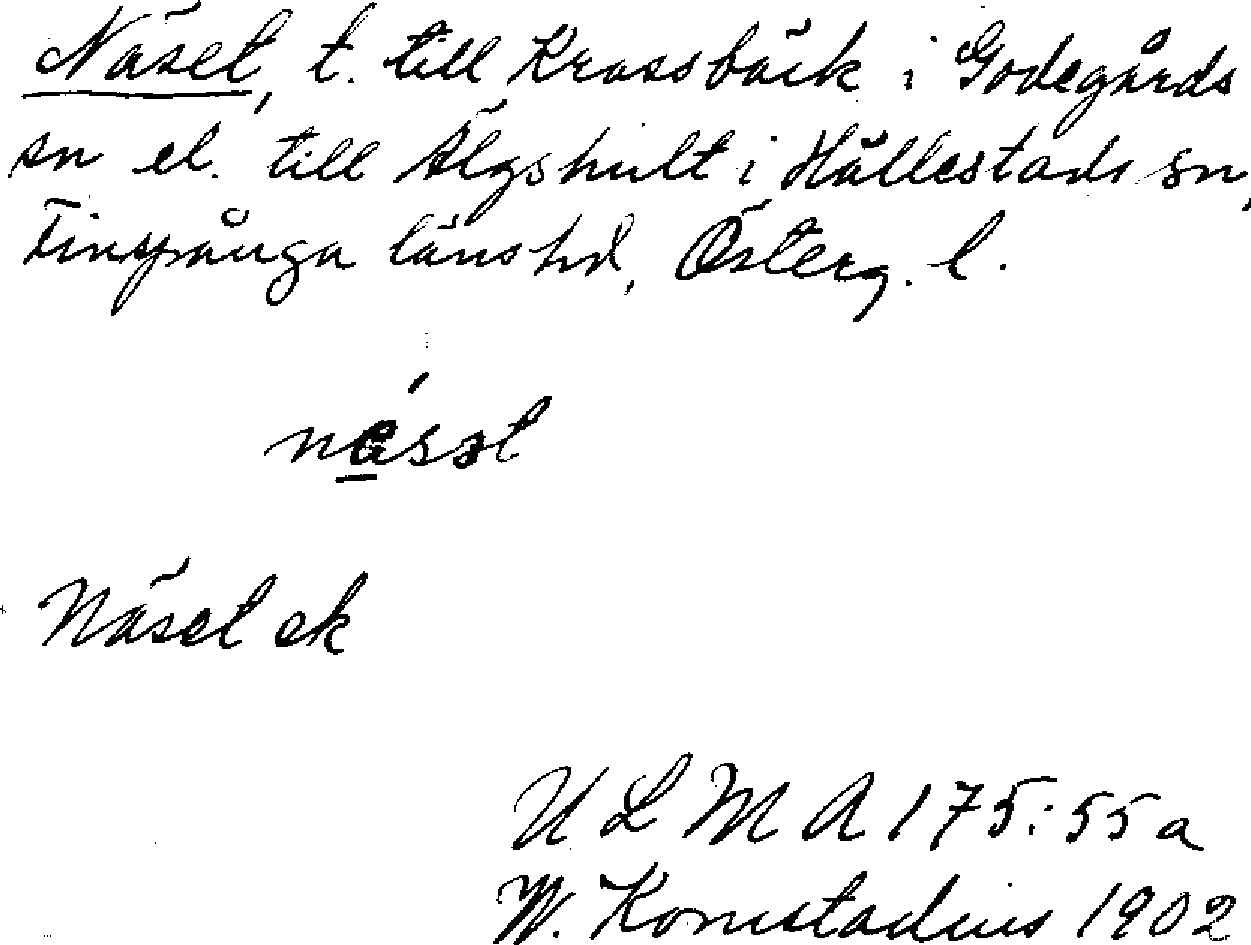 Näset, t. till Krossbäck i Godegårds
sn el. till Älgshult i Hällestads sn,
Finspånga läns hd, Österg. l.
näsət
Näset ek
U L M A 175:55a
W. Komstadius 1902